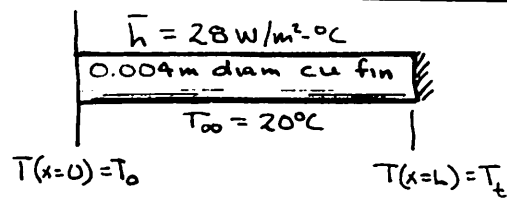 h̄ = 28 W/m²-°C
0.004m diam cu fin
T∞ = 20°C
T(x=0) = T₀
T(x=L) = Tₜ